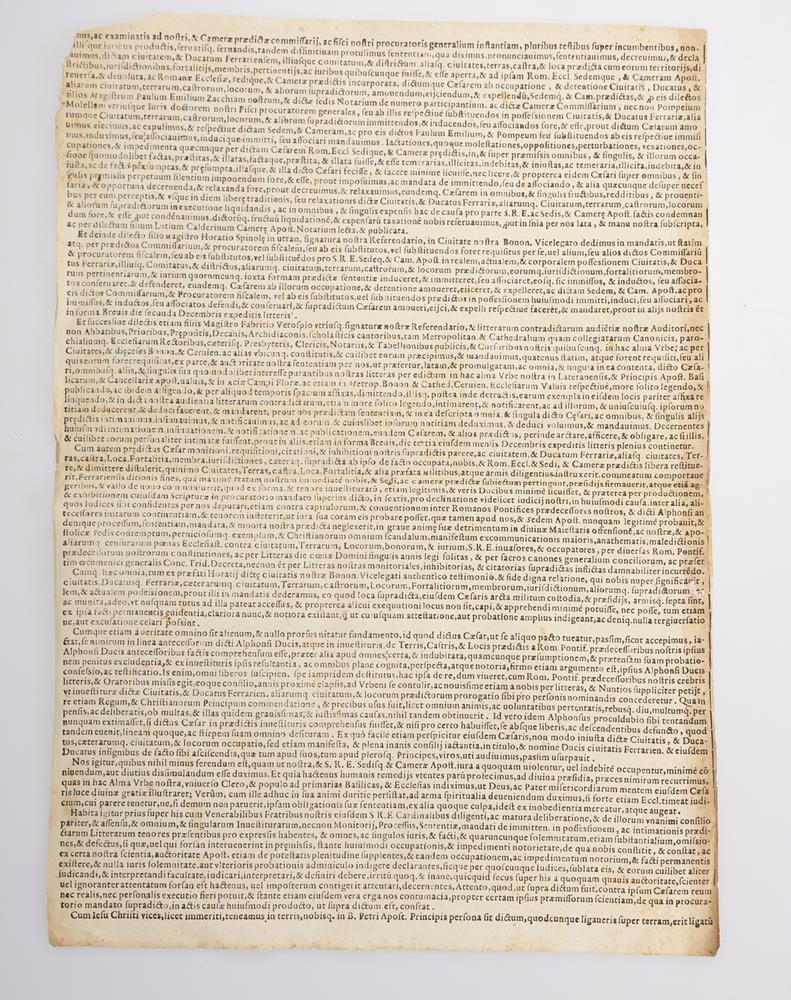 nus, ac examinatis ad nostri, & Cameræ prædictæ commissarij, ac fisci nostri procuratoris generalium instantiam, pluribus testibus super incumbentibus, non-
illisque iuribus productis, seruatisq. seruandis, tandem diffinitiuam protulimus sententiam, qua diximus, pronunciauimus, sententiauimus, decreuimus, & decla
auimus, dictam Ciuitatem, & Ducatum Ferrariensem, illiusque comitatum, & districtum, aliasq. ciuitates, terras, castra, & loca prædicta cum eorum territorijs, di
strictibus, iurisdictionibus, fortalitijs, membris, pertinentijs, ac iuribus quibuscunque fuisse, & esse aperta, & ad ipsam Rom. Eccl. Sedemque, & Cameram Apost.
reuersa, & deuoluta, ac Romanæ Ecclesiæ, Sedique, & Cameræ prædictis incorporata, dictumque Cæsarem ab occupatione, & detentione Ciuitatis, Ducatus, &
aliarum ciuitatum, terrarum, castrorum, locorum, & aliorum supradictorum, amouendum, eijciendum, & expellendum, Sedemq. & Cam. prædictas, & pro eis dilectos
filios Magistrum Paulum Emilium Zacchiam nostrum, & dictæ sedis Notarium de numero participantium, ac dictæ Cameræ Commissarium, nec non Pompeium
Molellam vtriusque Iuris doctorem nostri Fisci procuratorem generales, seu ab illis respectiue substituendos in possessionem Ciuitatis, & Ducatus Ferrariæ, alia
rumque Ciuitatum, terrarum, castrorum, locorum, & aliorum supradictorum immittendos, & inducendos, seu associandos fore, & esse, prout dictum Cæsarem amo
uimus, eiecimus, ac expulimus, & respectiue dictam Sedem, & Cameram, ac pro eis dictos Paulum Emilium, & Pompeum seu substituendos ab eis respectiue immisi
mus, induximus, seu associauimus, inducique immitti, seu associari mandauimus. Iactationes, quoque molestationes, oppositiones, perturbationes, vexationes, oc-
cupationes, & impedimenta quæcunque per dictum Cæsarem Rom. Eccl. Sedique, & Cameræ prædictis, in, & super præmissis omnibus, & singulis, & illorum occa-
sione quomodolibet factas, præstitas, & illatas, factaque, præstita, & illata fuisse, & esse temerarias, illicitas, indebitas, & iniustas, ac temeraria, illicita, indebita, & in
iusta, ac de facto præsumptas, & præsumpta, illasque, & illa dicto Cæsari fecisse, & facere minime licuisse, nec licere, & propterea eidem Cæsari super omnibus, & sin
gulis præmissis perpetuum silentium imponendum fore, & esse, prout imposuimus, ac mandata de immittendo, seu de associando, & alia quæcunque desuper necef
saria, & opportuna decernenda, & relaxanda fore, prout decreuimus, & relaxauimus, eundemq. Cæsarem in omnibus, & singulis fructibus, redditibus, & prouenti-
bus per eum perceptis, & vsque in diem liberæ traditionis, seu relaxationis dictæ Ciuitatis, & Ducatus Ferrariæ, aliarumq. Ciuitatum, terrarum, castrorum, locorum
& aliorum supradictorum in executione liquidandis, ac in omnibus, & singulis expensis hac de causa pro parte S.R.E. ac Sedis, & Cameræ Apost. factis condemnan
dum fore, & esse, put condēnauimus, dictorūq. fructuū liquidationē, & expensarū taxationē nobis reseruauimus, put in sñia per nos lata, & manu nostra subscripta,
ac per dilectum filium Lutium Calderinum Cameræ Apost. Notarium lecta, & publicata.
Et deinde dilecto filio magistro Horatio Spinolę in utran. signatura nostra Referendario, in Ciuitate nostra Bonon. Vicelegato dedimus in mandatis, ut statim
atq. per prædictos Commissarium, & procuratorem fiscalem, seu ab eis substitutos, vel substituendos foret requisitus per se, uel alium, seu alios dictos Commissariū
& procuratorem fiscalem, seu ab eis substitutos, vel substituēdos pro S.R.E. Sedeq. & Cam. Apost. in realem, actualem, & corporalem possessionem Ciuitatis, & Duca
tus Ferrariæ, illiusq. Comitatus, & districtus, aliarumq. ciuitatum, terrarum, castrorum, & locorum prædictorum, eorumq. iurisdictionum, fortalitiorum, membro-
rum pertinentiarum, & iurium quorumcunq. iuxta formam prædictæ sententiæ induceret, & immitteret, seu associaret, eosq. sic immissos, & inductos, seu associa-
tos conseruaret, & defenderet, eundemq. Cæsarem ab illorum occupatione, & detentione amoueret, eijceret, & expelleret, ac dictam Sedem, & Cam. Apost. ac pro
eis dictos Commissarium, & Procuratorem Fiscalem, vel ab eis substitutos, uel substituendos prædictos in possessionem huiusmodi immitti, induci, seu associari, ac
immissos, & inductos, seu associatos defendi, & conseruari, & supradictum Cæsarem amoueri, eijci, & expelli respectiue facerēt, & mandaret, prout in alijs nostris ēt
in forma Breuis die secunda Decembris expeditis litteris.
Et successiue dilectis etiam filijs Magistro Fabritio Verospio vtriusq. signaturæ nostræ Referendario, & litterarum contradictarum audiētiæ nostræ Auditori, nec
non Abbatibus, Prioribus, Præpositis, Decanis, Archidiaconis, scholasticis cantoribus, tam Metropolitan. & Cathedralium quam collegiatarum Canonicis, paro-
chialiumq. Ecclesiarum Rectoribus, cæterisq. Presbyteris, Clericis, Notarijs, & Tabellionibus publicis, & Cursoribus nostris quibuscunq. in hac alma Vrbe, ac per
Ciuitates, & diœceses Bonon. & Ceruien. ac alias vbicunq. constitutis, & cuilibet eorum præcipimus, & mandauimus, quatenus statim, atque forent requisiti, seu ali
quis eorum foret requisitus, ex parte, & auctoritate nostra sententiam per nos, ut præfertur, latam, & promulgatam, ac omnia, & singula in ea contenta, dicto Cæsa-
ri, omnibusq. alijs, & singulis sua quomodolibet interesse putantibus nostras litteras per edictum in hac alma Vrbe nostra in Lateranensis, & Principis Apost. Basi
licarum, & Cancellariæ Apost. ualuis, & in acie Campi Floræ, ac etiam in Metrop. Bonon. & Cathed. Ceruien. Ecclesiarum Valuis respectiue, more solito legendo, &
publicando, ac ibidem affigendo, & per aliquod temporis spacium affixas, dimittendo, illisq. postea inde detractis, earum exempla in eisdem locis pariter affixa re
linquendo, & in dicta nostra audientia litterarum contradictarum, etiam more solito legendo, intimarent, & notificarent, ac ad illorum, & uniuscuiusq. ipsorum no
titiam deducerent, & deduci facerent, & mandarent, prout nos prædictam sententiam, & in ea descripta omnia, & singula dicto Cęsari, ac omnibus, & singulis alijs
prędictis intimauimus, insinuauimus, & notificauimus, ac ad eorum, & cuiuslibet ipsorum notitiam deduximus, & deduci voluimus, & mandauimus. Decernentes
huiusmodi intimationem, insinuationem, & notificationem, ac publicationem, eundem Cæsarem, & alios prædictos, perinde arctare, afficere, & obligare, ac si illis,
& cuilibet eorum personaliter intimatæ fuissent, prout in alijs, etiam in forma Breuis, die tertia eiusdem mensis Decembris expeditis litteris plenius continetur.
Cum autem prędictus Cæsar monitioni, requisitioni, citationi, & inhibitioni nostris supradictis parere, ac ciuitatem, & Ducatum Ferrariæ, aliasq. ciuitates, Ter-
ras, castra, Loca, Fortalitia, membra, iurisdictiones, cæteraq. supradicta ab ipso de facto occupata, nobis, & Rom. Eccl. & Sedi, & Cameræ prædictis libera restitue-
re, & dimittere distulerit, quinimo Ciuitates, Terras, castra, Loca, Fortalitia, & alia præfata militibus, atque armis diligentius instruxerit, commeatum comportaue
rit, Ferrariensis ditionis fines, qua maxime statum nostrum immediatè nobis, & Sedi, ac cameræ prædictæ subiectum pertingunt, præsidijs firmauerit, atque etiā ag-
geribus, & vallo de nouo communiuerit, quod ex forma, & tenore inuestiturarū, etiam legitimis, & veris Ducibus minimè licuisset, & præterea per productionem,
& exhibitionem cuiusdam Scripturæ in procuratorio mandato superius dicto, in sextis, pro declinatione videlicet iudicij nostri, in huiusmodi causa, inter alia, ali-
quos Iudices sibi confidentes per nos deputari, etiam contra capitulorum, & conuentionum inter Romanos Pontifices prædecessores nostros, & dicti Alphonsi an
tecessores initarum continentiam, & tenorem institerit, ut iura sua coram eis probare posset, quæ tamen apud nos, & Sedem Apost. nunquam legitimè probauit, &
denique processum, sententiam, mandata, & monita nostra prædicta neglexerit, in graue animę suę detrimentum in diuinæ Maiestatis offensione, ac nostræ, & apo-
stolicæ sedis contemptum, perniciosumq. exemplum, & Christianorum omnium scandalum, manifestum excommunicationis maioris, anathematis, maledictionis
aliarumq. censurarum pœnas Ecclesiast. contra ciuitatum, Terrarum, Locorum, bonorum, & iurium, S.R.E. inuasores, & occupatores, per diuersas Rom. Pontif.
prædecessorum nostrorum constitutiones, ac per Litteras die cœnæ Domini singulis annis legi solitas, & per sacros canones generalium conciliorum, ac præser
tim œcumenici generalis Conc. Trid. Decreta, necnon ēt per Litteras nostras monitoriales, inhibitorias, & citatorias supradictas inflictas damnabiliter incurrēdo.
Cumq. hæc omnia, tum ex præfati Horatij dictę ciuitatis nostræ Bonon. Vicelegati authentico testimonio, & fide digna relatione, qui nobis nuper significauit,
ciuitatis, Ducatusq. Ferrariæ, cæterarumq. ciuitatum, Terrarum, castrorum, Locorum, Fortalitiorum, membrorum, iurisdictionum, aliorumq. supradictorum
lem, & actualem possessionem, prout illi in mandatis dederamus, eo quod loca supradicta, eiusdem Cæsaris arcta militum custodia, & præsidijs, armisq. septa sint,
ac munita, adeo, vt nusquam tutus ad illa pateat accessus, & propterea alicui exequutioni locus non sit, capi, & apprehendi minimè potuisse, nec posse, tum etiam
ex ipsa facti permanentis euidentia, clariora nunc, & notiora existant, q̄ ut cuiusquam attestatione, aut probatione amplius indigeant, ac deniq. nulla tergiuersatio
ne, aut excusatione celari possint.
Cumque etiam à ueritate omnino sit alienum, & nullo prorsus nitatur fundamento, id quod dictus Cæsar, ut se aliquo pacto tueatur, passim, sicut accepimus, ia-
ctat, se nimirum in linea antecessorum dicti Alphonsi Ducis, atque in inuestituris, de Terris, Castris, & Locis prædictis a Rom. Pontif. prædecessoribus nostris ipsius
Alphonsi Ducis antecessoribus factis comprehensum esse, præter alia apud omnes certa, & indubitata, quamcunque præsumptionem, & prætensam suam probatio-
nem penitus excludentia, & ex inuestituris ipsis resultantia, ac omnibus planè cognita, perspecta, atque notoria, firmo etiam argumento est, ipsius Alphonsi Ducis
confessio, ac testificatio. Is enim, omni liberorum susceptione, spe iampridem destitutus, hac ipsa de re, dum viueret, cum Rom. Pontif. prædecessoribus nostris crebris
litteris, & Oratoribus missis egit, eoque consilio, annis proximè elapsis, ad Vrbem se contulit, ac nouissimè etiam a nobis per litteras, & Nuntios suppliciter petijt,
vt inuestituræ dictæ Ciuitatis, & Ducatus Ferrarien. aliarumq. ciuitatum, & locorum prædictorum prorogatio sibi pro personis nominandis concederetur. Quam
re etiam Regum, & Christianorum Principum commendatione, & precibus usus fuit, licet omnium animis, ac voluntatibus pertentatis, rebusq. diu, multumq. per
pensis, ac deliberatis, ob multas, & illas quidem grauissimas, & iustissimas causas, nihil tandem obtinuerit. Id vero idem Alphonsus proculdubio sibi tentandum
nunquam existimasset, si dictus Cæsar in prædictis inuestituris comprehensus fuisset, & nisi pro certo habuisset, se absque liberis, ac descendentibus defuncto, quod
tandem euenit, lineam quoque, ac stirpem suam omnino desituram. Ex quo facilè etiam perspicitur eiusdem Cæsaris, non modo iniusta dictæ Ciuitatis, & Duca-
tus, cæterarumq. ciuitatum, & locorum occupatio, sed etiam manifesta, & plena inanis consilij iactantia, in titulo, & nomine Ducis ciuitatis Ferrarien. & eiusdem
Ducatus insignibus de facto sibi asciscendis, quæ tum apud suos, tum apud plerosq. Principes, viros, uti audiuimus, passim usurpauit.
Nos igitur, quibus nihil minus ferendum est, quam ut nostra, & S. R. E. Sedisq. & Cameræ Apost. iura a quoquam uiolentur, uel indebitè occupentur, minimè cō
niuendum, aut diutius dissimulandum esse duximus. Et quia hactenus humanis remedijs vtentes parū profecimus, ad diuina præsidia, preces nimirum recurrimus,
quas in hac Alma Vrbe nostra, vniuerso Clero, & populo ad primarias Basilicas, & Ecclesias indiximus, ut Deus, ac Pater misericordiarum mentem eiusdem Cæsa
ris luce diuinæ gratiæ illustraret; Verùm, cum ille adhuc in sua animi duritie persistat, ad arma spiritualia deueniendum duximus, si forte etiam Eccl. timeat iudi-
cium, cui parere tenetur, ne, si demum non paruerit, ipsam obligationis suæ sententiam, ex alia quoque culpa, idest ex inobedientia mereatur, atque augeat.
Habita igitur prius super his cum Venerabilibus Fratribus nostris eiusdem S.R.E. Cardinalibus diligenti, ac matura deliberatione, & de illorum vnanimi consilio
pariter, & assensu, & omnium, & singularum Inuestiturarum, necnon Monitorij, Processus, Sententiæ, mandati de immitten. in possessionem, ac intimationis prædi-
ctarum Litterarum tenores præsentibus pro expressis habentes, & omnes, ac singulos iuris, & facti, & quarumcunque solemnitatum, etiam substantialium, omissio-
nes, & defectus, si qui, uel qui forsan interuenerint in præmissis, stante huiusmodi occupationis, & impedimenti notorietate, de qua nobis constitit, & constat, ac
ex certa nostra scientia, auctoritate Apost. etiam de potestatis plenitudine supplentes, & eandem occupationem, ac impedimentum notorium, & facti permanentis
existere, & nulla iuris solemnitate, aut vlterioris probationis adminiculo indigere declarantes, sicque per quoscunque Iudices, sublata eis, & eorum cuilibet aliter
iudicandi, & interpretandi facultate, iudicari, interpretari, & definiri debere, irritū quoq. & inane, quicquid secus super his a quoquam quauis auctoritate, scienter
uel ignoranter attentatum forsan est hactenus, uel imposterum contigerit attentari, decernentes, Attento, quod, ut supra dictum fuit, contra ipsum Cæsarem reum
nec realis, nec personalis executio fieri potuit, & stante etiam eiusdem vera erga nos contumacia, propter certam ipsius præmissorum scientiam, de qua in procura-
torio mandato supradicto, in actis causæ huiusmodi producto, ut supra dictum est, constat.
Cum Iesu Christi vices, licet immeriti, teneamus in terris, nobisq. in B. Petri Apost. Principis persona sit dictum, quodcunque ligaueris super terram, erit ligatū